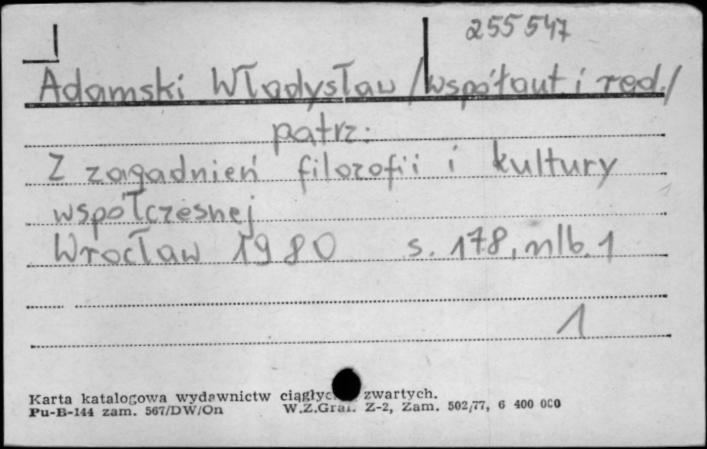 255547
Adamski Władysław /współaut i red/
patrz:
Z zagadnień filozofii i kultury
współczesnej
Wrocław 1980 s. 178, nlb. 1
1
Karta katalogowa wydawnictw zwartych.
Pu-B-144 zam. 567/DW/On W.Z.Graf. Z-2, Zam. 502/77, 6 400 000